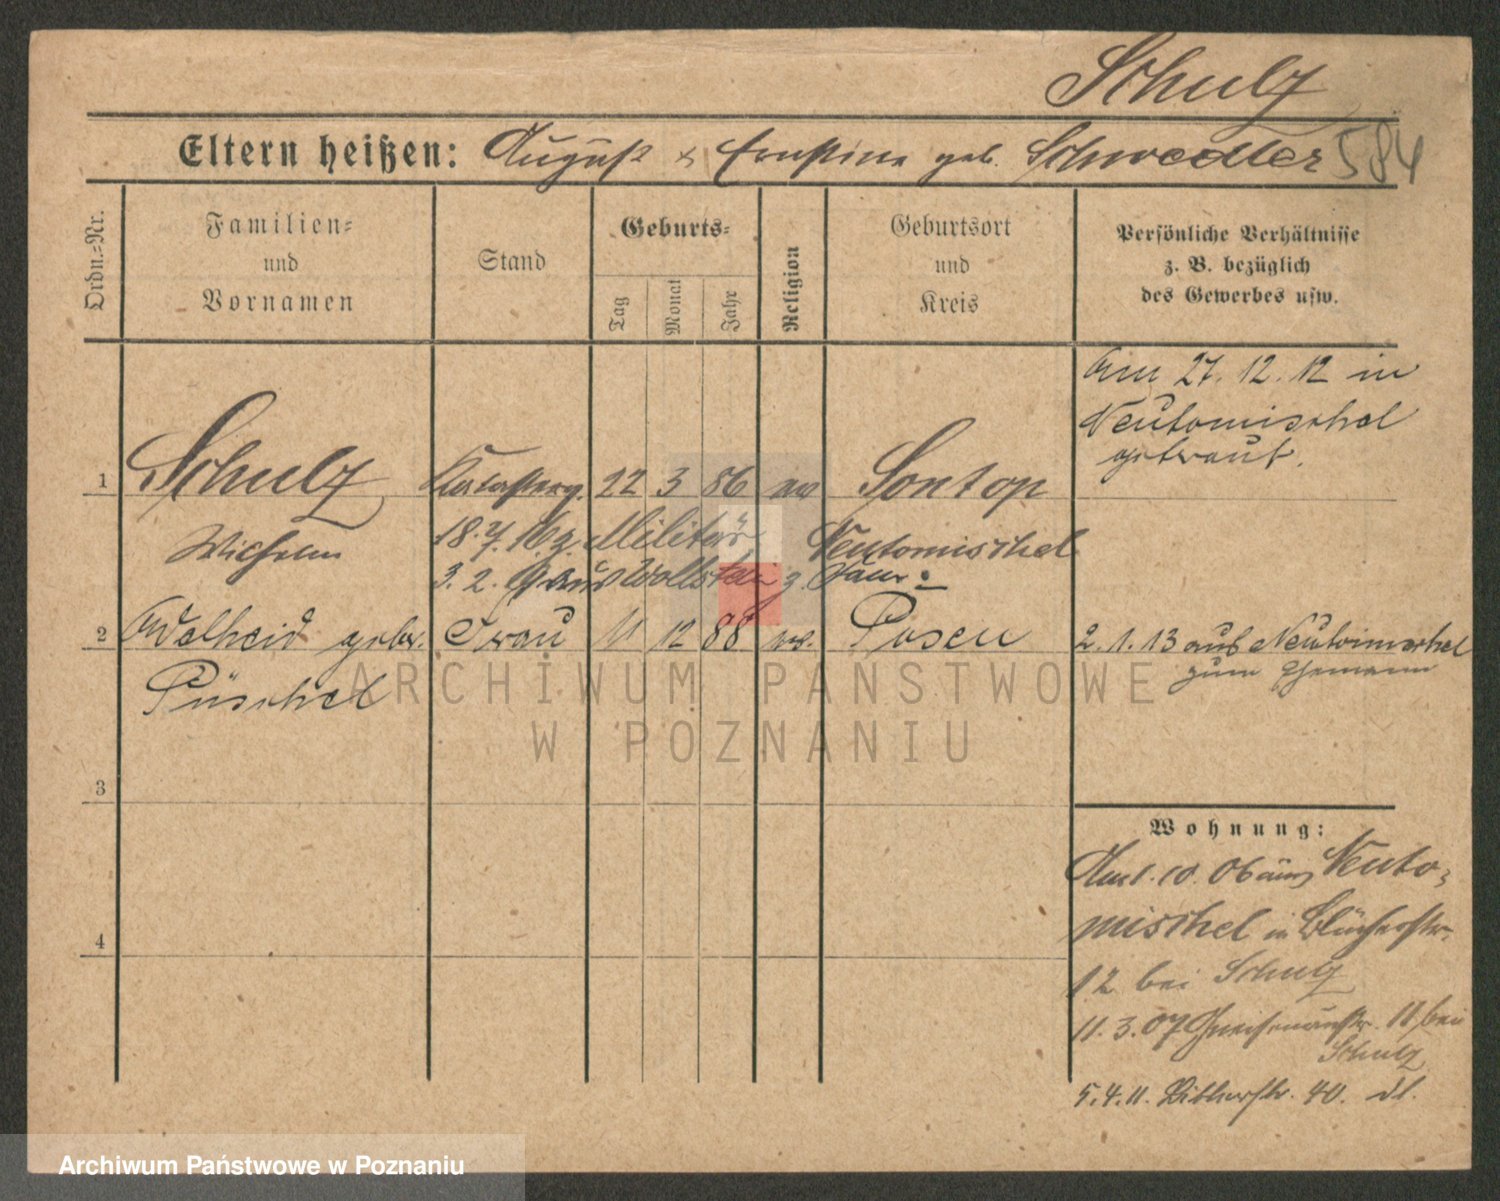 Schulz
Eltern heißen: August & Ernstine geb. Schwedler 584
Ordn.-Nr.
Familien- und Vornamen
Stand
Geburts-
Tag
Monat
Jahr
Religion
Geburtsort und Kreis
Persönliche Verhältnisse
z. B. bezüglich
des Gewerbes usw.
Am 27. 12. 12 in
Neutomischel
getraut.
1 Schulz 22 3 86 ev Sontop
Wilhelm 18. 7. Militär Neutomischel
3. 2. aus Wollstein z. Fam.
2 Adelheid gebr. Frau 11 12 88 ev. Posen 2. 1. 13 aus Neutomischel
Püschel zum Ehemann
ARCHIWUM PAŃSTWOWE
W POZNANIU
3
4
Wohnung:
Am 1. 10. 06 aus Neuto-
mischel in Blücherstr.
12 bei Schulz
11. 3. 07 Gneisenaustr. 11 bei
Schulz
5. 4. 11. 40. dl.
Archiwum Państwowe w Poznaniu